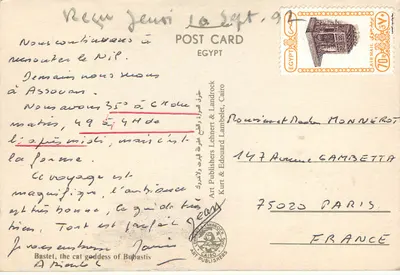 Reçu Jeudi 10 Sept. 92
POST CARD
EGYPT
Nous continuons à
remonter le Nil.
Demain nous serons
à Assouan.
Nous avons 35° à 6H du
matin, 49 à 4H de
l'après midi, mais c'est
la forme.
Le voyage est
magnifique, l'ambiance
est très bonne, le guide très
bien. Tout est parfait
Je vous embrasse
A bientôt
Jean
Bastet, the cat goddess of Bubastis
Art Publishers Lehnert & Landrock
Kurt & Edouard Lambelet, Cairo
EGYPT
Monsieur Madame MONNEROT
147 Avenue GAMBETTA
75020 PARIS
FRANCE